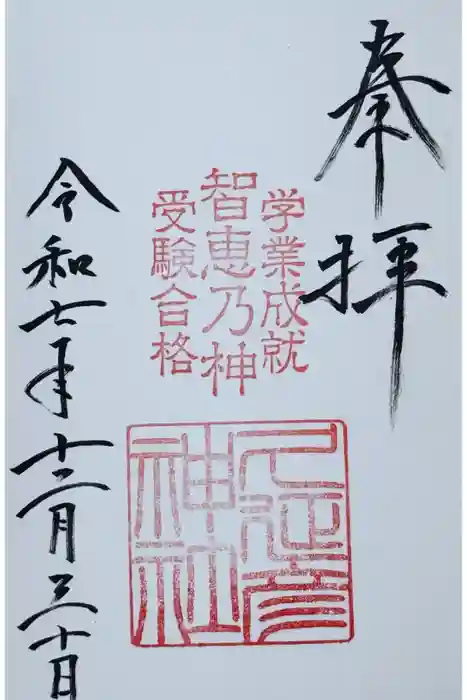 奉拝
学業成就
智恵乃神
受験合格
久延彦
神社
令和七年十二月三十日